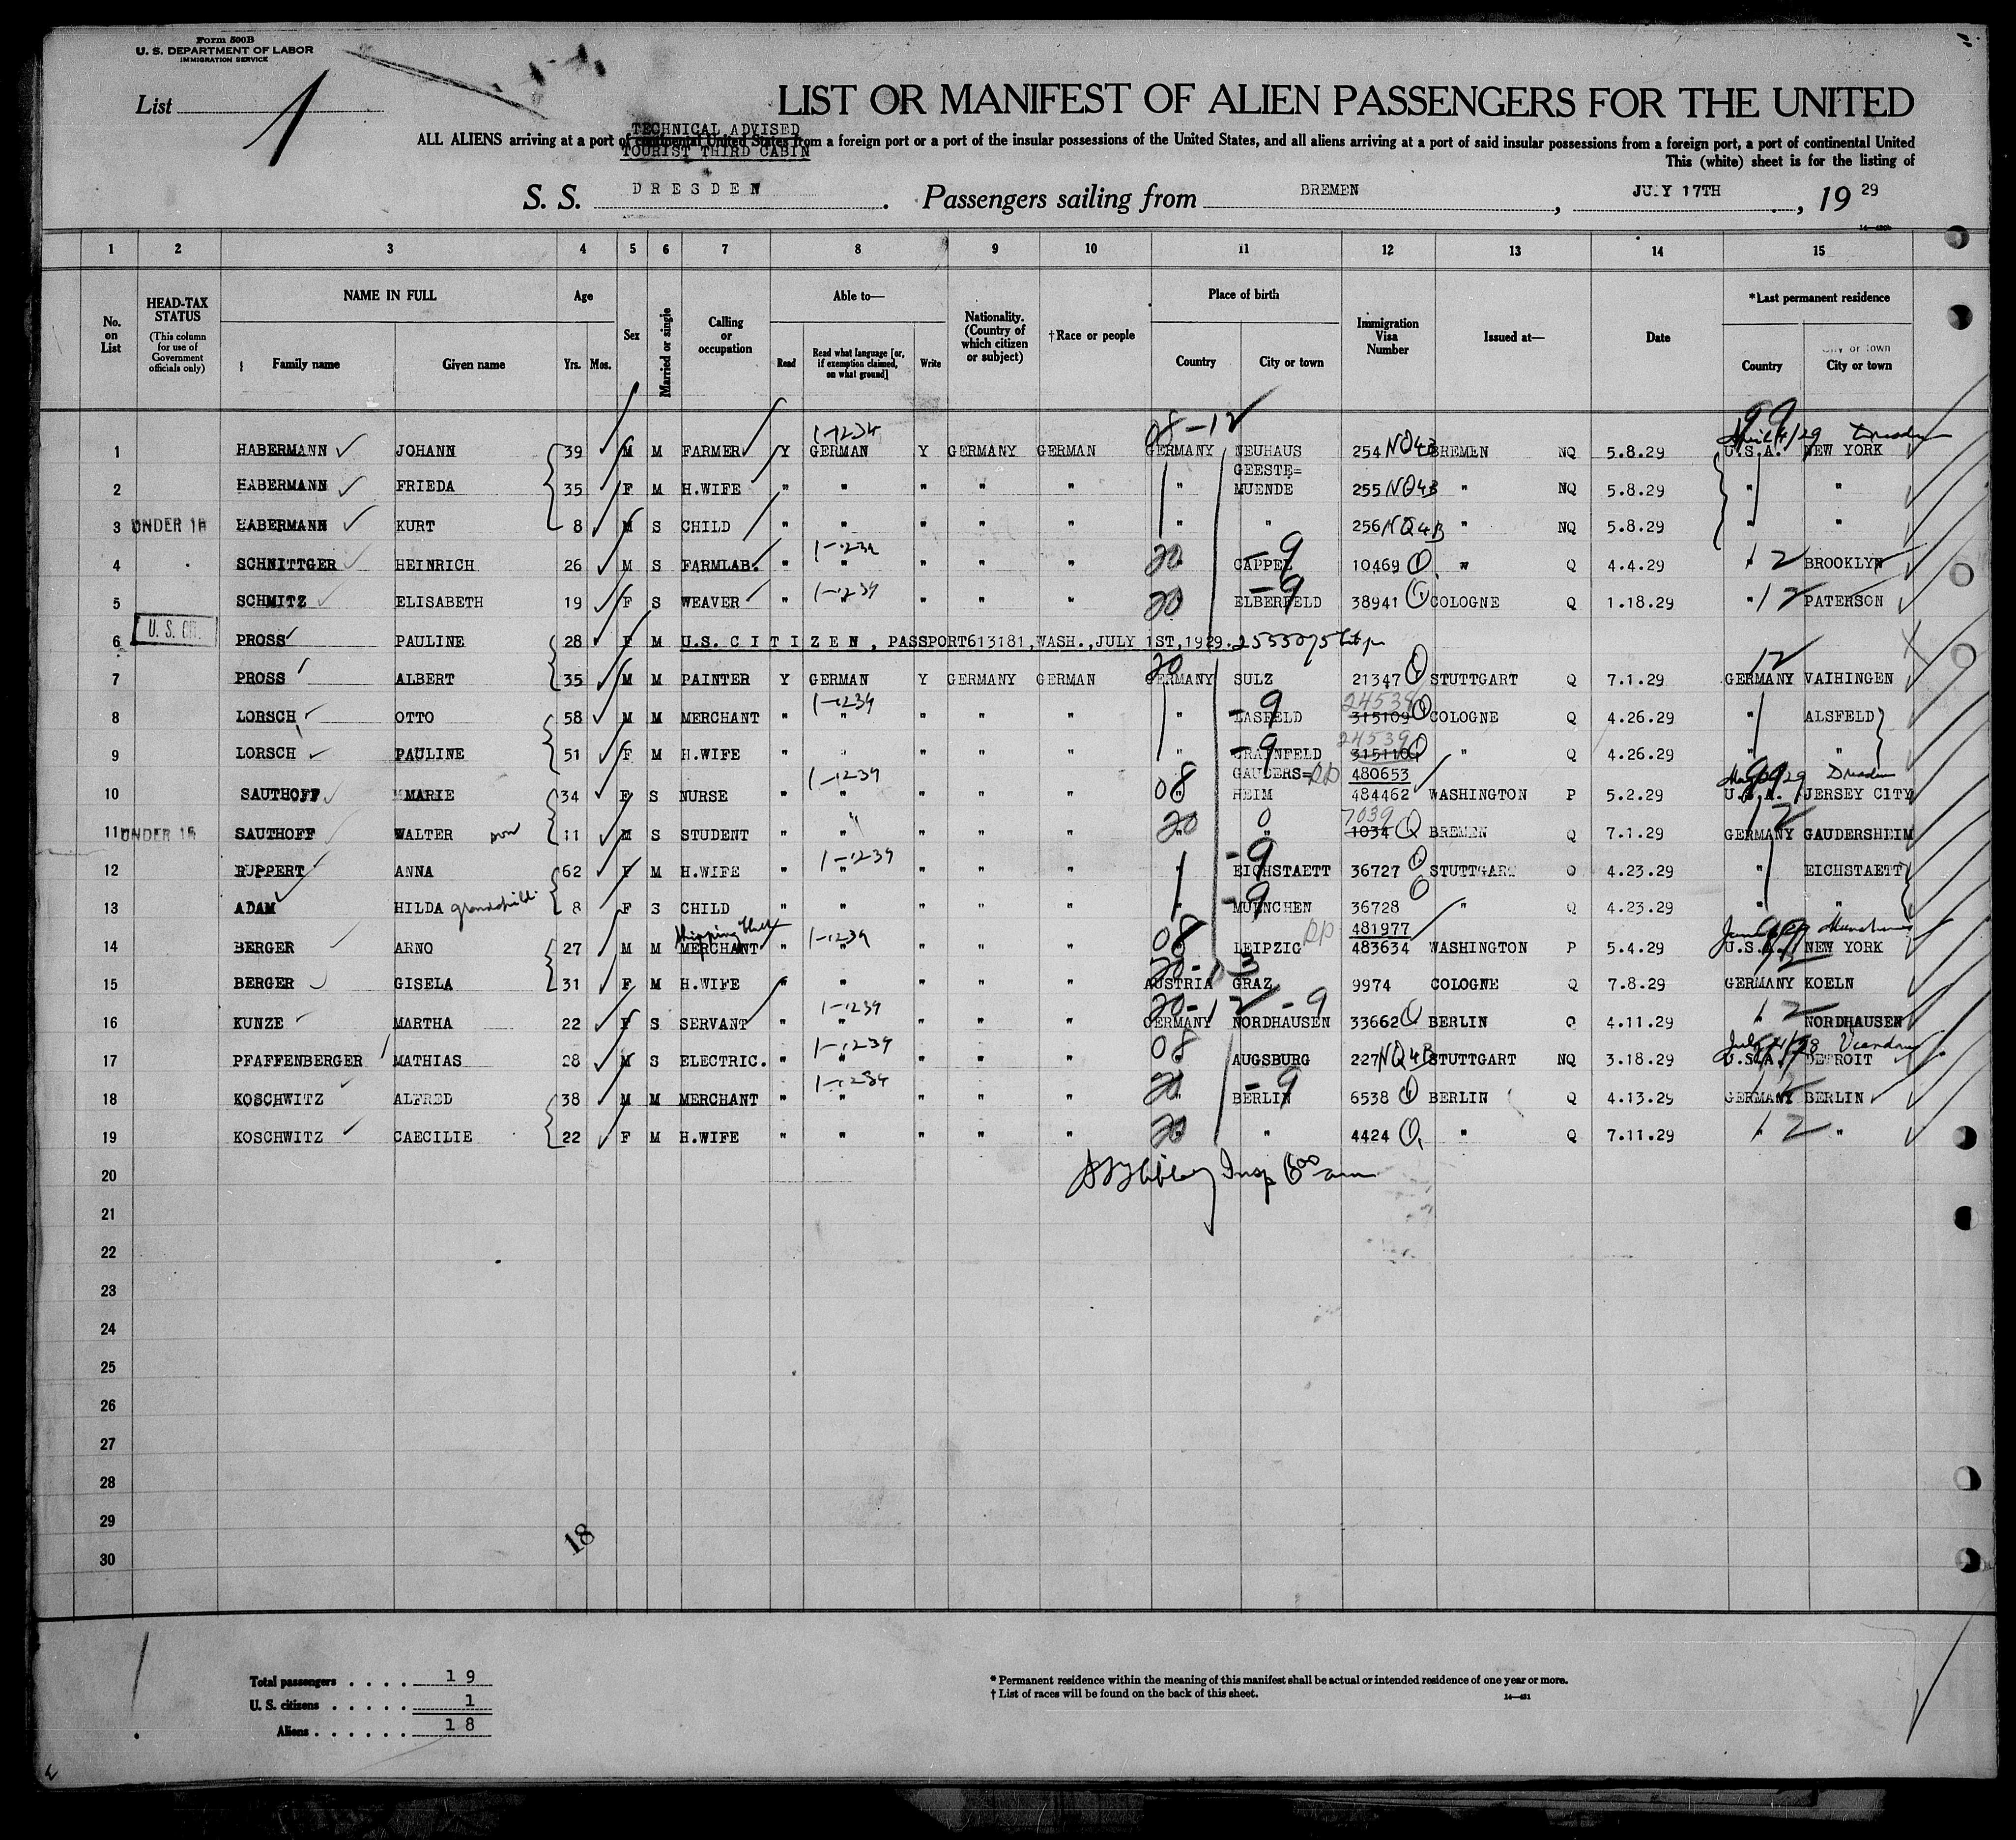 Form 500B
U. S. DEPARTMENT OF LABOR
IMMIGRATION SERVICE
List 1
LIST OR MANIFEST OF ALIEN PASSENGERS FOR THE UNITED
TECHNICAL ADVISED
ALL ALIENS arriving at a port of continental United States from a foreign port or a port of the insular possessions of the United States, and all aliens arriving at a port of said insular possessions from a foreign port, a port of continental United
TOURIST THIRD CABIN
This (white) sheet is for the listing of
S. S. DRESDEN. Passengers sailing from BREMEN, JULY 17TH, 19 29
1 2 3 4 5 6 7 8 9 10 11 12 13 14 15
No. on List
HEAD-TAX STATUS (This column for use of Government officials only)
NAME IN FULL
Family name Given name
Age
Yrs. Mos.
Sex
Married or single
Calling or occupation
Able to—
Read Read what language [or, if exemption claimed, on what ground] Write
Nationality. (Country of which citizen or subject)
†Race or people
Place of birth
Country City or town
Immigration Visa Number
Issued at—
Date
*Last permanent residence
Country City or town
1 HABERMANN JOHANN 39 M M FARMER Y GERMAN Y GERMANY GERMAN GERMANY NEUHAUS 254 NQ4B BREMEN NQ 5.8.29 U.S.A. NEW YORK
GEESTE=
2 HABERMANN FRIEDA 35 F M H.WIFE " " " " " " MUENDE 255 NQ4B " NQ 5.8.29 " "
3 UNDER 16 HABERMANN KURT 8 M S CHILD " " " " " " " 256 NQ4B " NQ 5.8.29 " "
4 SCHNITTGER HEINRICH 26 M S FARMLAB. " " " " " " CAPPEL 10469 " Q 4.4.29 " BROOKLYN
5 SCHMITZ ELISABETH 19 F S WEAVER " " " " " " ELBERFELD 38941 COLOGNE Q 1.18.29 " PATERSON
6 U.S. CIT. PROSS PAULINE 28 F M U.S. CITIZEN, PASSPORT613181,WASH.,JULY 1ST,1929.
7 PROSS ALBERT 35 M M PAINTER Y GERMAN Y GERMANY GERMAN GERMANY SULZ 21347 STUTTGART Q 7.1.29 GERMANY VAIHINGEN
24538
8 LORSCH OTTO 58 M M MERCHANT " " " " " " LASFELD 315109 COLOGNE Q 4.26.29 " ALSFELD
24539
9 LORSCH PAULINE 51 F M H.WIFE " " " " " " CRAINFELD 315110 " Q 4.26.29 " "
GAUDERS= 480653
10 SAUTHOFF MARIE 34 F S NURSE " " " " " " HEIM 484462 WASHINGTON P 5.2.29 U.S.A. JERSEY CITY
7039
11 UNDER 16 SAUTHOFF WALTER son 11 M S STUDENT " " " " " " " 1034 BREMEN Q 7.1.29 GERMANY GAUDERSHEIM
12 RUPPERT ANNA 62 F M H.WIFE " " " " " " EICHSTAETT 36727 STUTTGART Q 4.23.29 " EICHSTAETT
13 ADAM HILDA grandchild 8 F S CHILD " " " " " " MUENCHEN 36728 " Q 4.23.29 " "
481977
14 BERGER ARNO 27 M M MERCHANT " " " " " " LEIPZIG 483634 WASHINGTON P 5.4.29 U.S.A. NEW YORK
15 BERGER GISELA 31 F M H.WIFE " " " " " AUSTRIA GRAZ 9974 COLOGNE Q 7.8.29 GERMANY KOELN
16 KUNZE MARTHA 22 F S SERVANT " " " " " GERMANY NORDHAUSEN 33662 BERLIN Q 4.11.29 " NORDHAUSEN
17 PFAFFENBERGER MATHIAS 28 M S ELECTRIC. " " " " " " AUGSBURG 227 NQ4B STUTTGART NQ 3.18.29 U.S.A. DETROIT
18 KOSCHWITZ ALFRED 38 M M MERCHANT " " " " " " BERLIN 6538 BERLIN Q 4.13.29 GERMANY BERLIN
19 KOSCHWITZ CAECILIE 22 F M H.WIFE " " " " " " " 4424 " Q 7.11.29 " "
20
21
22
23
24
25
26
27
28
29
30
18
Total passengers . . . . 19
U. S. citizens . . . . . 1
Aliens . . . . . . 18
* Permanent residence within the meaning of this manifest shall be actual or intended residence of one year or more.
† List of races will be found on the back of this sheet.
14—431